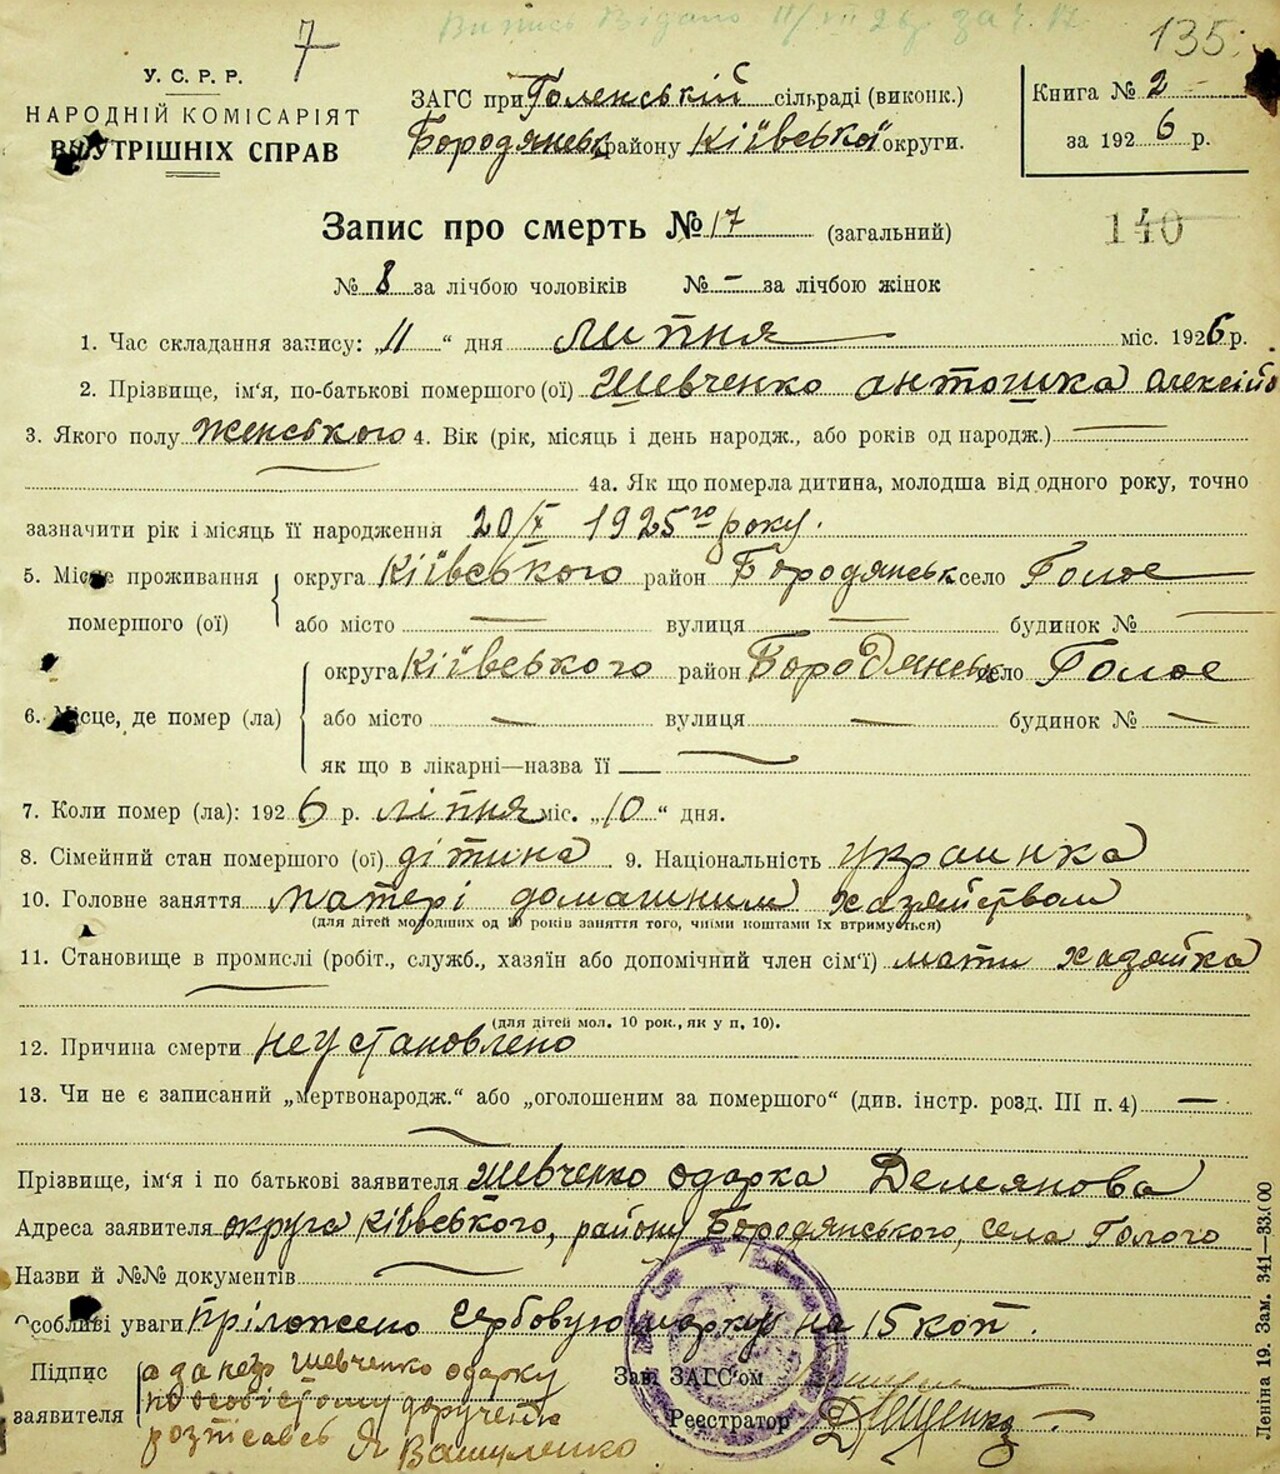 Випись Відано 11/VII 26р. за ч. 17
7
135
У. С. Р. Р.
НАРОДНІЙ КОМІСАРІЯТ
ВНУТРІШНІХ СПРАВ
ЗАГС при Голенській сільраді (виконк.)
Бородянськ району Кіївської округи.
Книга № 2
за 1926 р.
Запис про смерть № 17 (загальний)
140
№ 8 за лічбою чоловіків № - за лічбою жінок
1. Час складання запису: „11“ дня липня міс. 1926 р.
2. Прізвище, ім‘я, по-батькові помершого (ої) Шевченко Антошка Олексійо
3. Якого полу женського 4. Вік (рік, місяць і день народж., або років од народж.) —
4а. Як що померла дитина, молодша від одного року, точно
зазначити рік і місяць її народження 20/X 1925го року.
5. Місце проживання помершого (ої) округа Кіївського район Бородянськ село Голое
або місто — вулиця — будинок № —
6. Місце, де помер (ла) округа Кіївського район Бородянськ село Голое
або місто — вулиця — будинок № —
як що в лікарні—назва її —
7. Коли помер (ла): 1926 р. ліпня міс. „10“ дня.
8. Сімейний стан помершого (ої) дітина 9. Національність украинка
10. Головне заняття матері домашним хазяйством
(для дітей молодших од 10 років заняття того, чиїми коштами їх втримується)
11. Становище в промислі (робіт., служб., хазяїн або допомічний член сім‘ї) мати хазяйка
(для дітей мол. 10 рок., як у п. 10).
12. Причина смерти неустановлено
13. Чи не є записаний „мертвонародж.“ або „оголошеним за помершого“ (див. інстр. розд. III п. 4) —
Прізвище, ім‘я і по батькові заявителя Шевченко Одарка Демянова
Адреса заявителя округа Кіївського, району Бородянського, села Голого
Назви й №№ документів —
Особливі уваги пріложено гербовую марку на 15 коп.
Підпис заявителя а за негр Шевченко Одарку
по особістому дорученню
розпісавсь Я Вашуленко
Зав. ЗАГС‘ом
Реєстратор
Леніна 19. Зам. 341—33.000